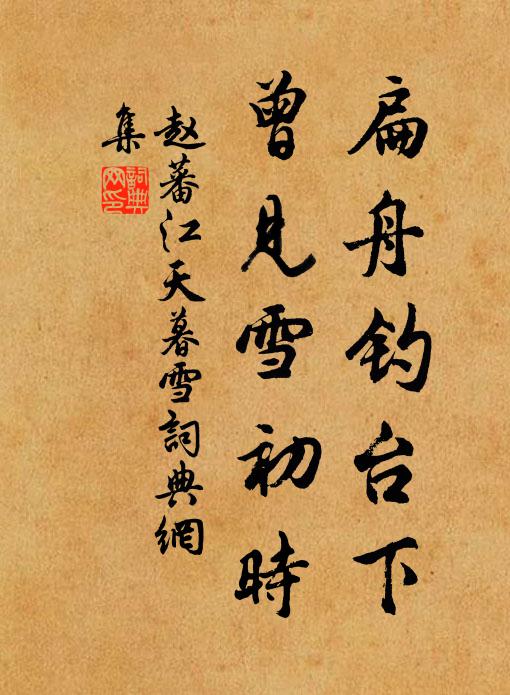 扁舟钓台下
曾见雪初時
赵蕃江天暮雪詞典網
集
詞典网印